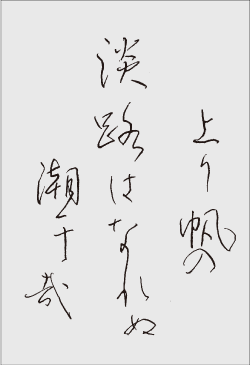 上り帆の
淡路はなれぬ
潮干哉